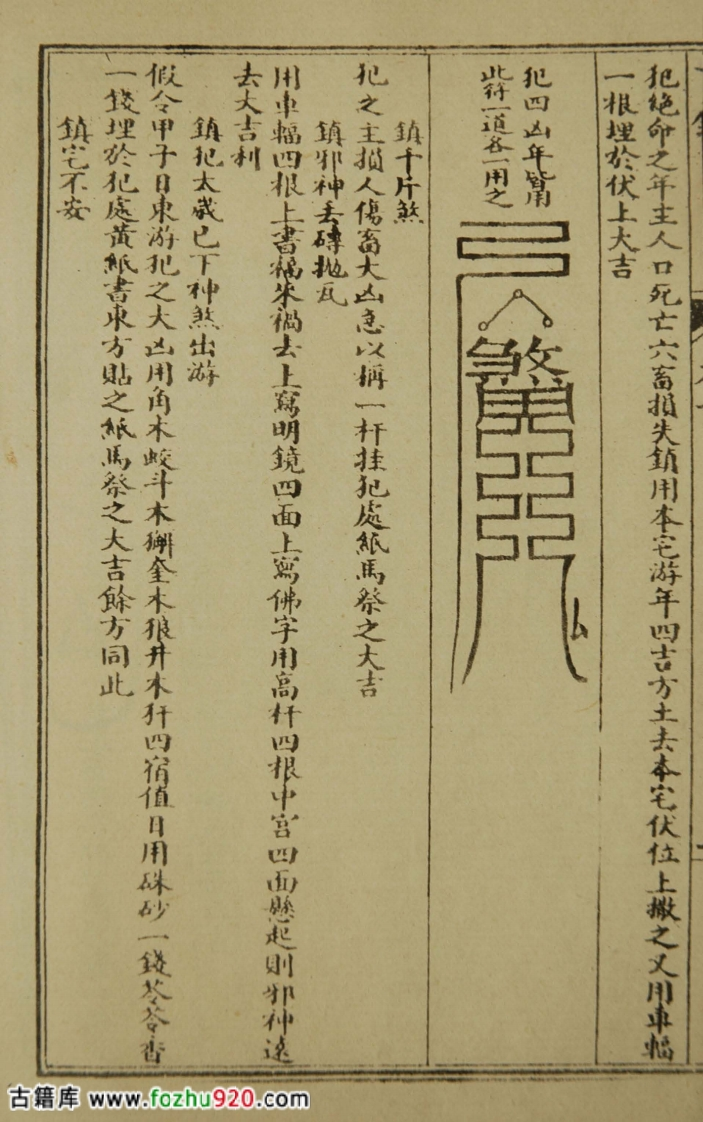 犯絕命之年主人口死亡六畜損失鎮用本宅游年四吉方土去本宅伏位上撒之又用車輻
一根埋於伏上大吉
犯四凶年皆用
此符一道各一用之
鎮千斤煞
犯之主損人傷畜大凶急以稱一杆挂犯處紙馬祭之大吉
鎮邪神丟磚抛瓦
用車輻四根上書福來禍去上寫明鏡四面上寫佛字用高杆四根中宮四面懸起則邪神遠
去大吉利
鎮犯太歲已下神煞出游
假令甲子日東游犯之大凶用角木蛟斗木獬奎木狼井木犴四宿值日用硃砂一錢苓苓香
一錢埋於犯處黃紙書東方貼之紙馬祭之大吉餘方同此
鎮宅不安
古籍库 www.fozhu920.com